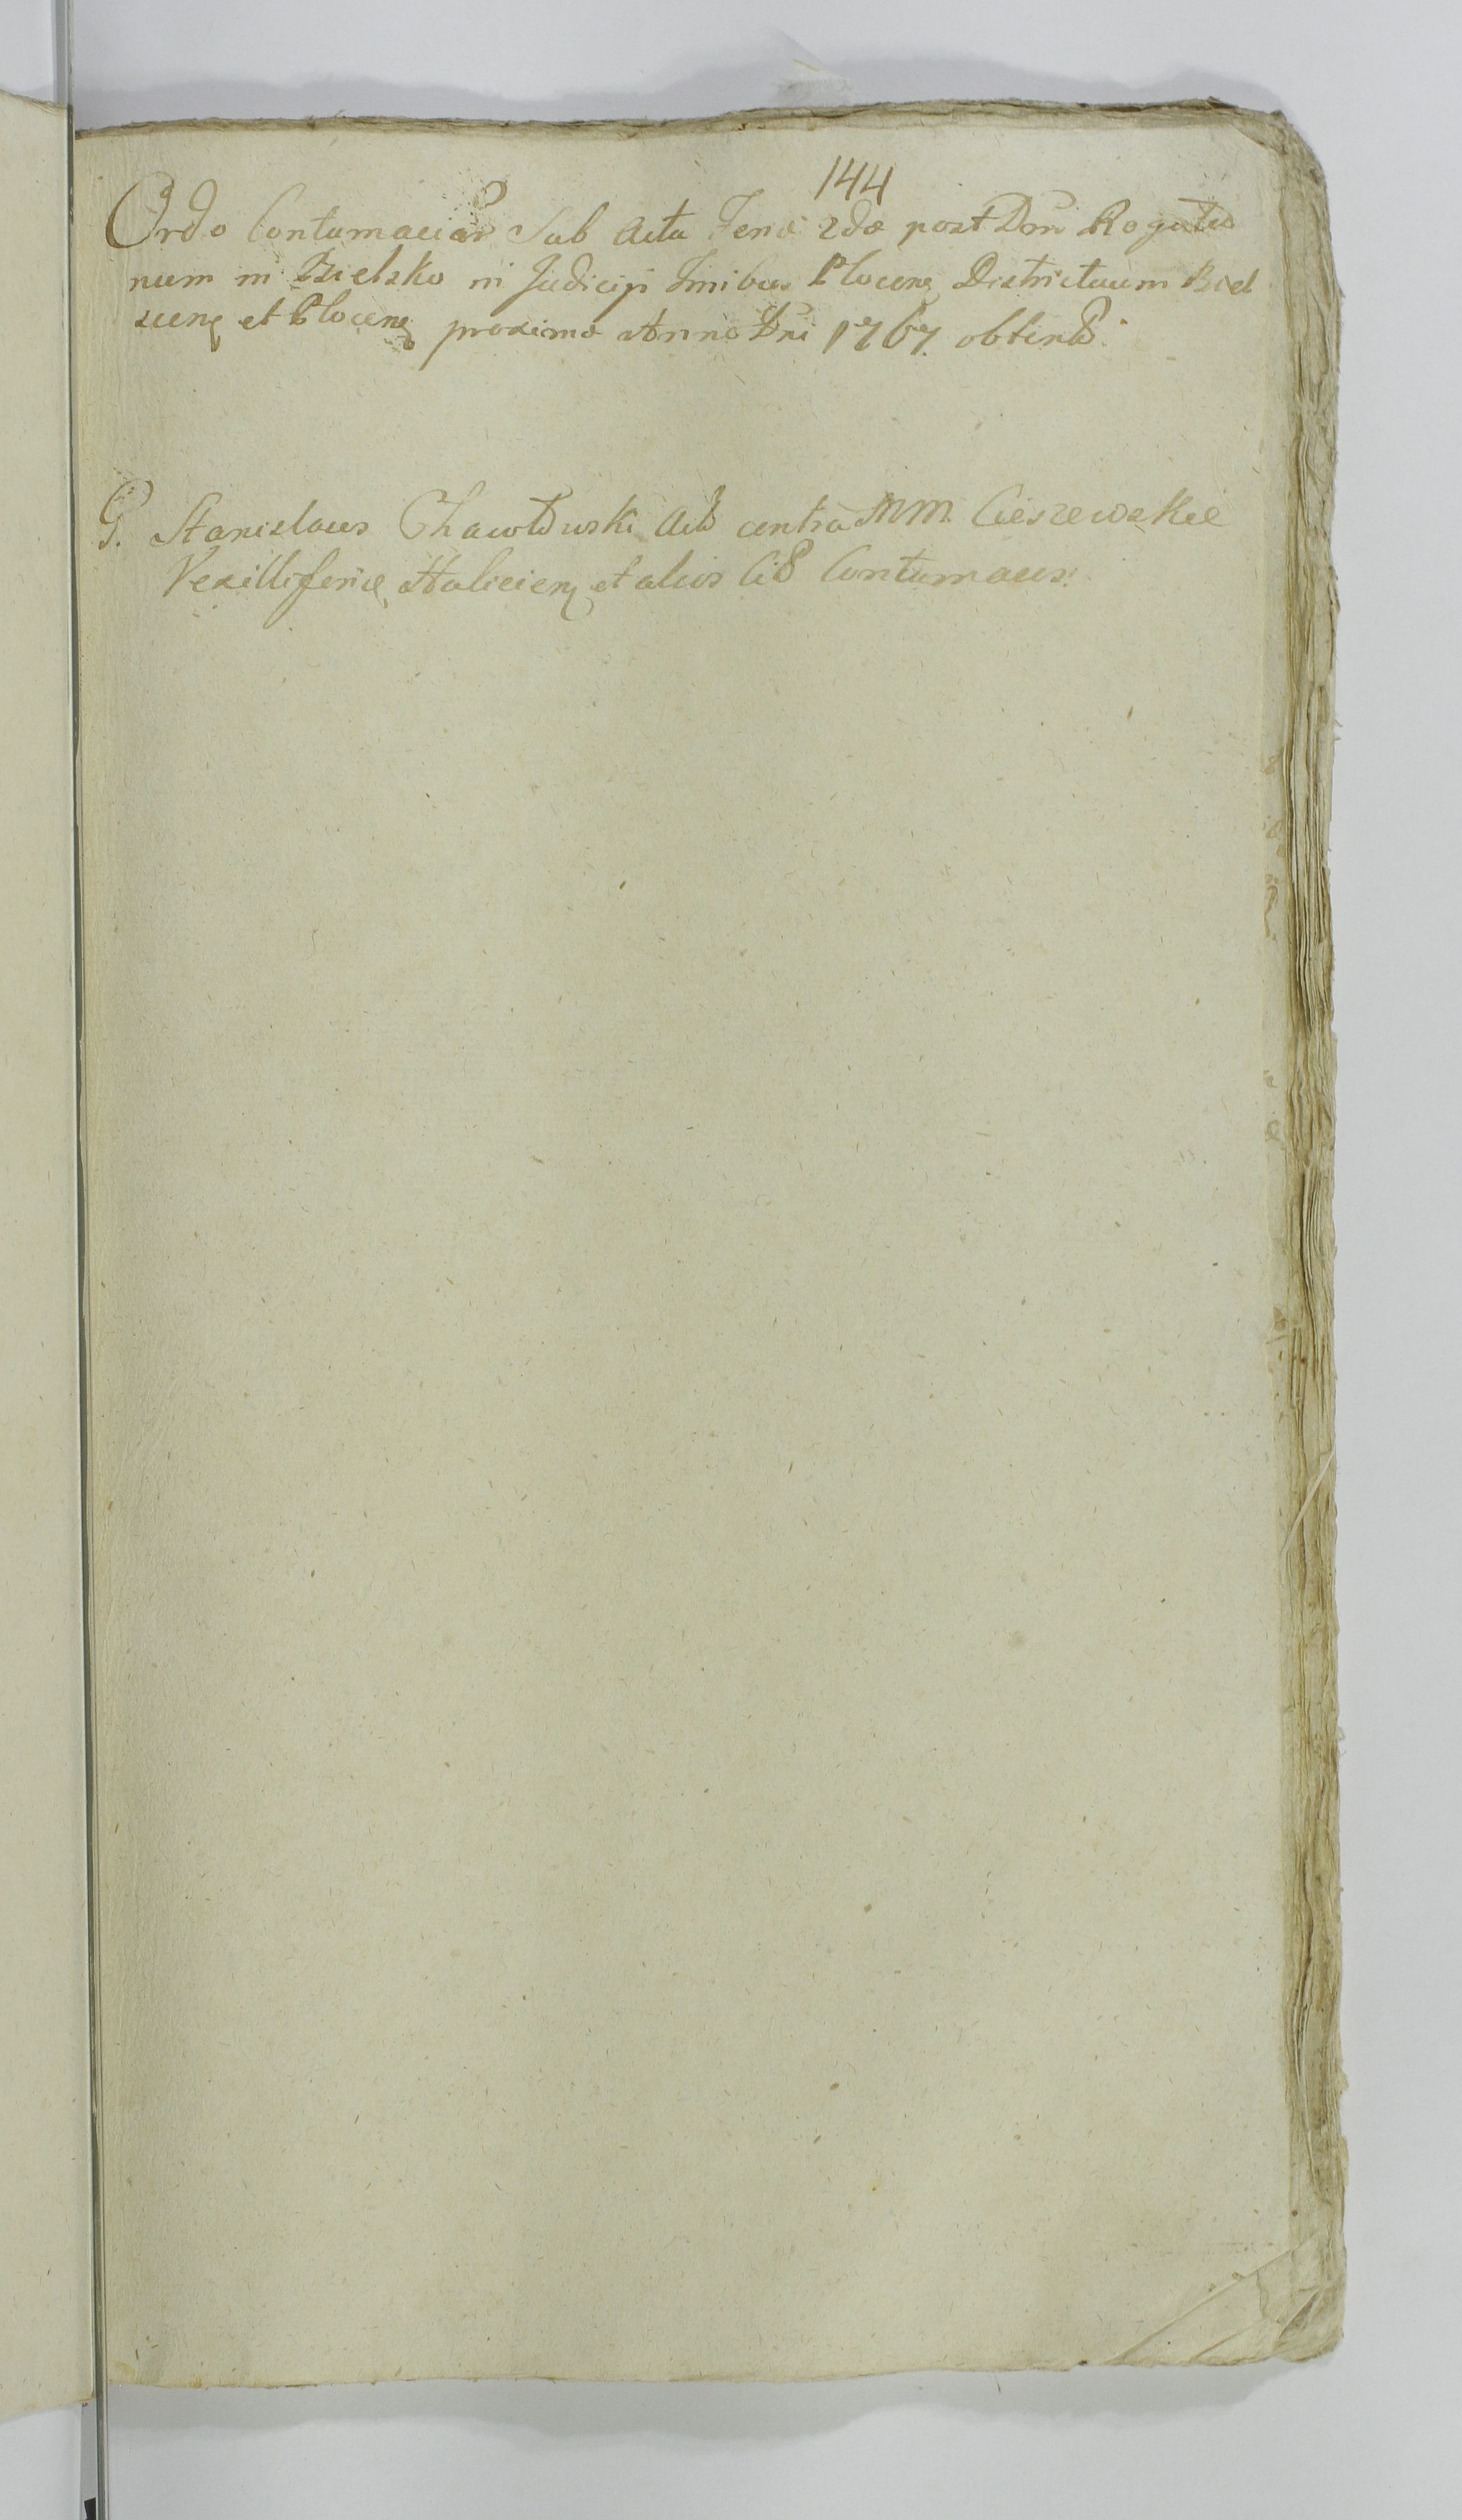 144
Ordo Contumaciar Sub Actu Feriæ 2dæ post Dnii Rogatio
num in Bielsko in Judicijs Tribus Plocens Districtuum Biel
scens et Plocens proxime Anno Dni 1767 obtent
G. Stanislaus Chawłowski Act contra MM. Cieszewskie
Vexilliferidæ Halicien et alios Cit Contumaces